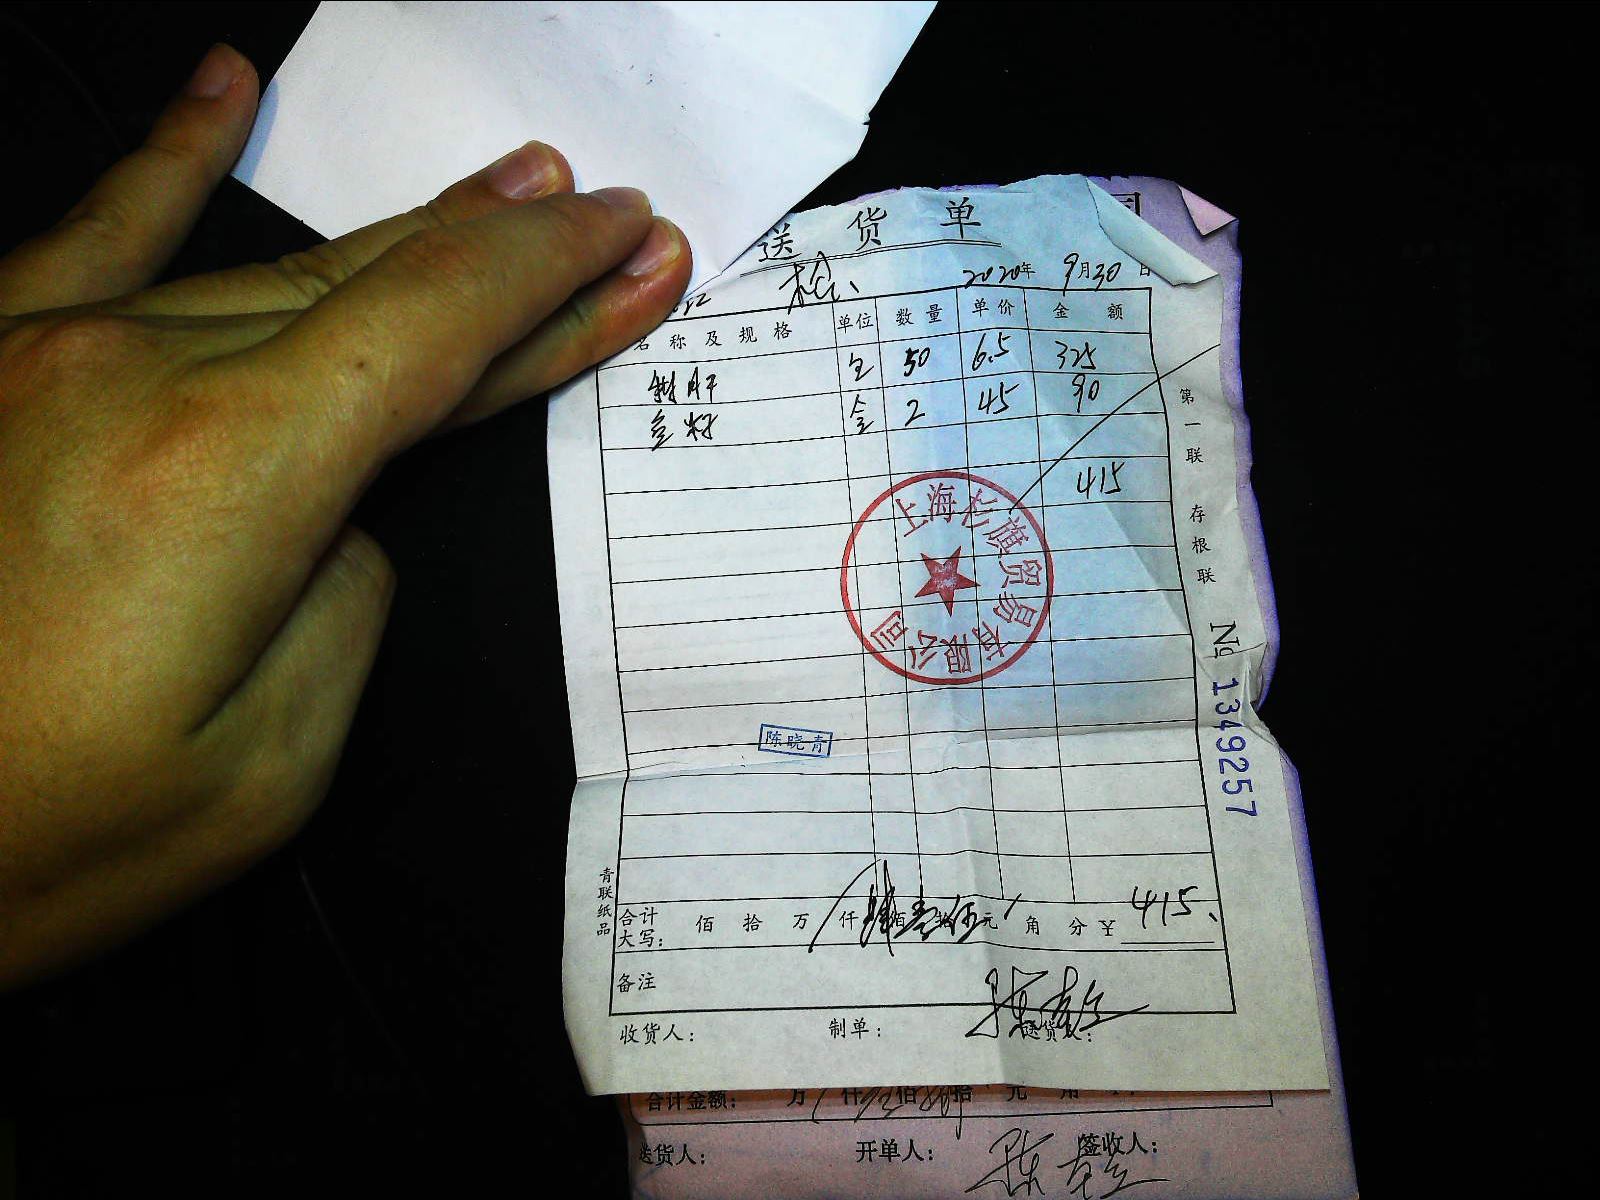 送 货 单
2020年 9月30日
名 称 及 规 格 单位 数 量 单 价 金 额
50 6.5 325
2 45 90
415
第一联 存根联
上海杉旗贸易有限公司
No 1349257
陈晓青
青联纸品
合计大写: 佰 拾 万 仟 佰 拾 元 角 分 ¥ 415
备注
收货人: 制单: 送货人:
合计金额: 万 仟 佰 拾 元 角
送货人: 开单人: 签收人: